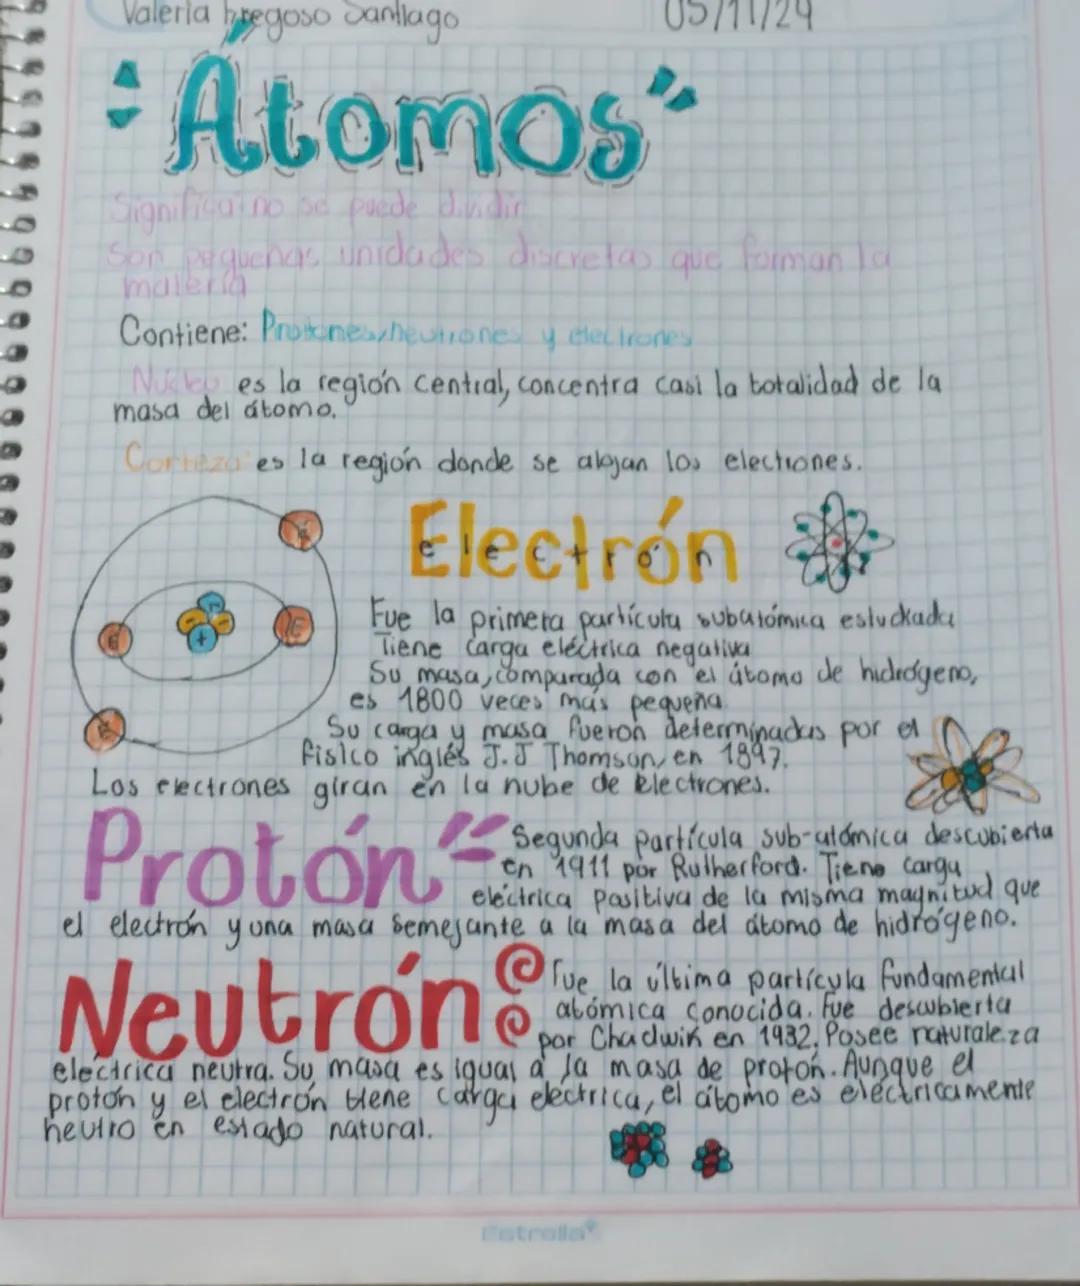 Valeria Santiago
05/11/24
Átomos
Significa: no se puede dividir
Son pequeñas unidades discretas que forman la
materia
Contiene: Protones, neutrones y electrones
Núcleo es la región central, concentra casi la totalidad de la
masa del átomo.
Corteza: es la región donde se alojan los electrones.
Electrón
electrón
E
E
E
E
+
Fue la primera partícula subatómica estudiada
Tiene carga eléctrica negativa
Su masa, comparada con el átomo de hidrógeno,
es 1800 veces más pequeña.
Su carga y masa fueron determinadas por el
físico inglés J.J Thomson, en 1897.
Los electrones giran en la nube de electrones.
Protón
Segunda partícula sub-atómica descubierta
en 1911 por Rutherford. Tiene carga
eléctrica positiva de la misma magnitud que
el electrón y una masa semejante a la masa del átomo de hidrógeno.
Neutrón
Fue la última partícula fundamental
atómica conocida. Fue descubierta
por Chadwik en 1932. Posee naturaleza
eléctrica neutra. Su masa es igual a la masa de protón. Aunque el
protón y el electrón tiene carga eléctrica, el átomo es eléctricamente
neutro en estado natural.
Estrella